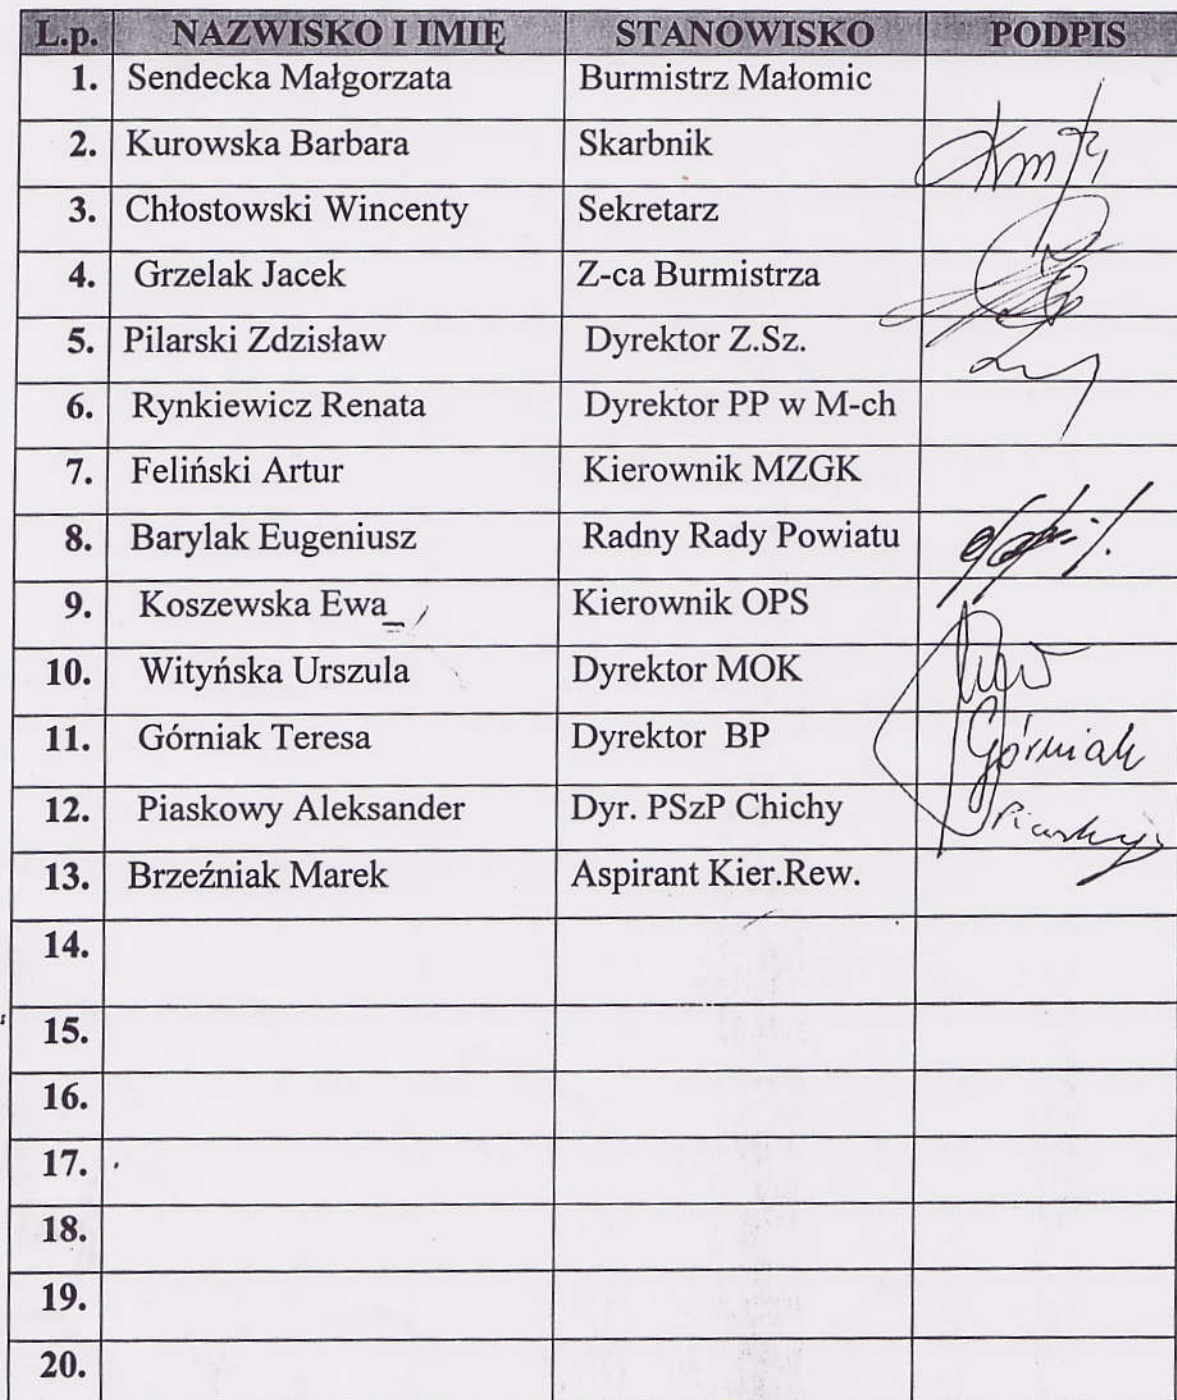 L.p. NAZWISKO I IMIĘ STANOWISKO PODPIS
1. Sendecka Małgorzata Burmistrz Małomic
2. Kurowska Barbara Skarbnik
3. Chłostowski Wincenty Sekretarz
4. Grzelak Jacek Z-ca Burmistrza
5. Pilarski Zdzisław Dyrektor Z.Sz.
6. Rynkiewicz Renata Dyrektor PP w M-ch
7. Feliński Artur Kierownik MZGK
8. Barylak Eugeniusz Radny Rady Powiatu
9. Koszewska Ewa Kierownik OPS
10. Wityńska Urszula Dyrektor MOK
11. Górniak Teresa Dyrektor BP Górniak
12. Piaskowy Aleksander Dyr. PSzP Chichy
13. Brzeźniak Marek Aspirant Kier.Rew.
14.
15.
16.
17.
18.
19.
20.